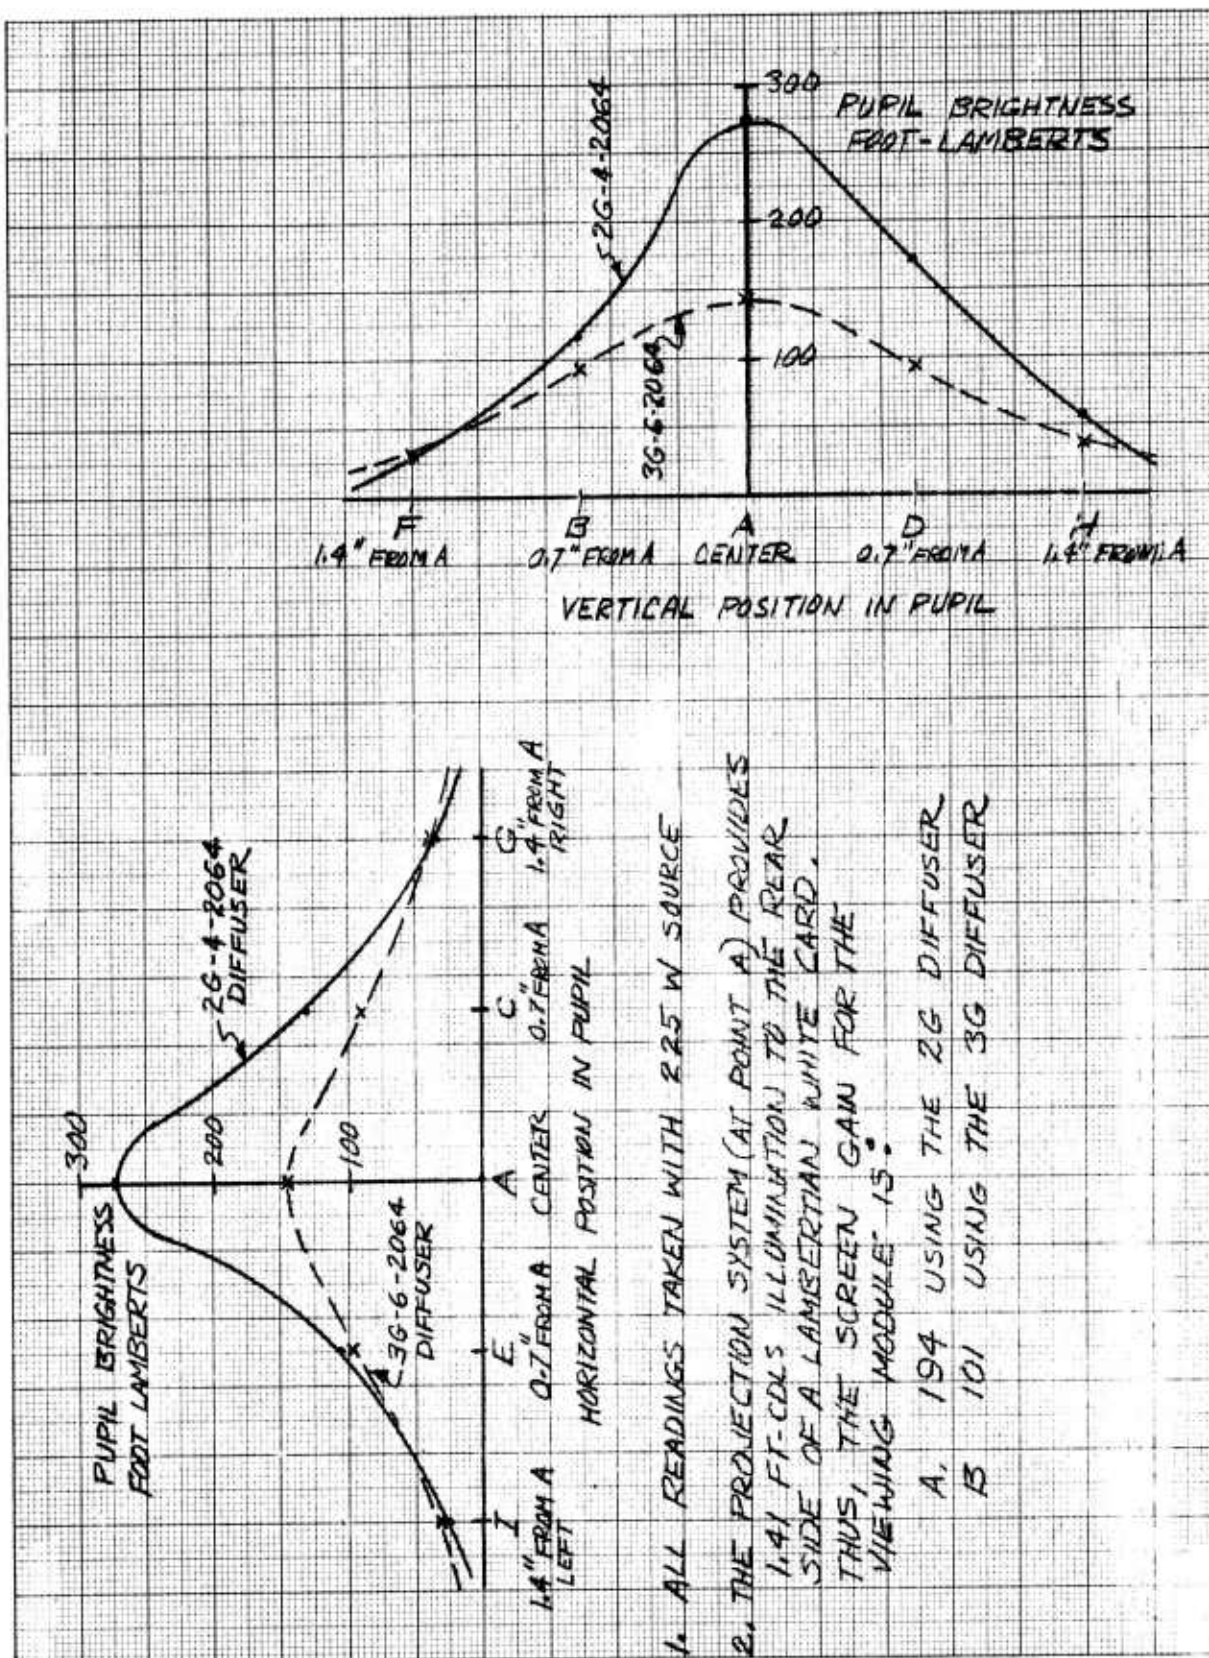 300
PUPIL BRIGHTNESS
FOOT-LAMBERTS
2G-4-2064
200
3G-6-2064
100
F B A D H
1.4" FROM A 0.7" FROM A CENTER 0.7" FROM A 1.4" FROM A
VERTICAL POSITION IN PUPIL
PUPIL BRIGHTNESS
FOOT LAMBERTS
300
2G-4-2064
DIFFUSER
200
100
3G-6-2064
DIFFUSER
I E A C G
1.4" FROM A 0.7" FROM A CENTER 0.7" FROM A 1.4" FROM A
LEFT RIGHT
HORIZONTAL POSITION IN PUPIL
1. ALL READINGS TAKEN WITH 225 W SOURCE
2. THE PROJECTION SYSTEM (AT POINT A) PROVIDES
1.41 FT-CDLS ILLUMINATION TO THE REAR
SIDE OF A LAMBERTIAN WHITE CARD.
THUS, THE SCREEN GAIN FOR THE
VIEWING MODULE IS:
A. 194 USING THE 2G DIFFUSER
B 101 USING THE 3G DIFFUSER